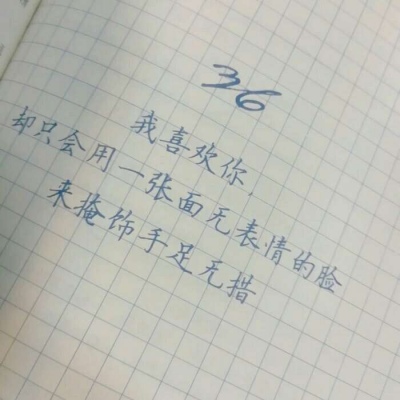 36
我喜欢你,
却只会用一张面无表情的脸
来掩饰手足无措